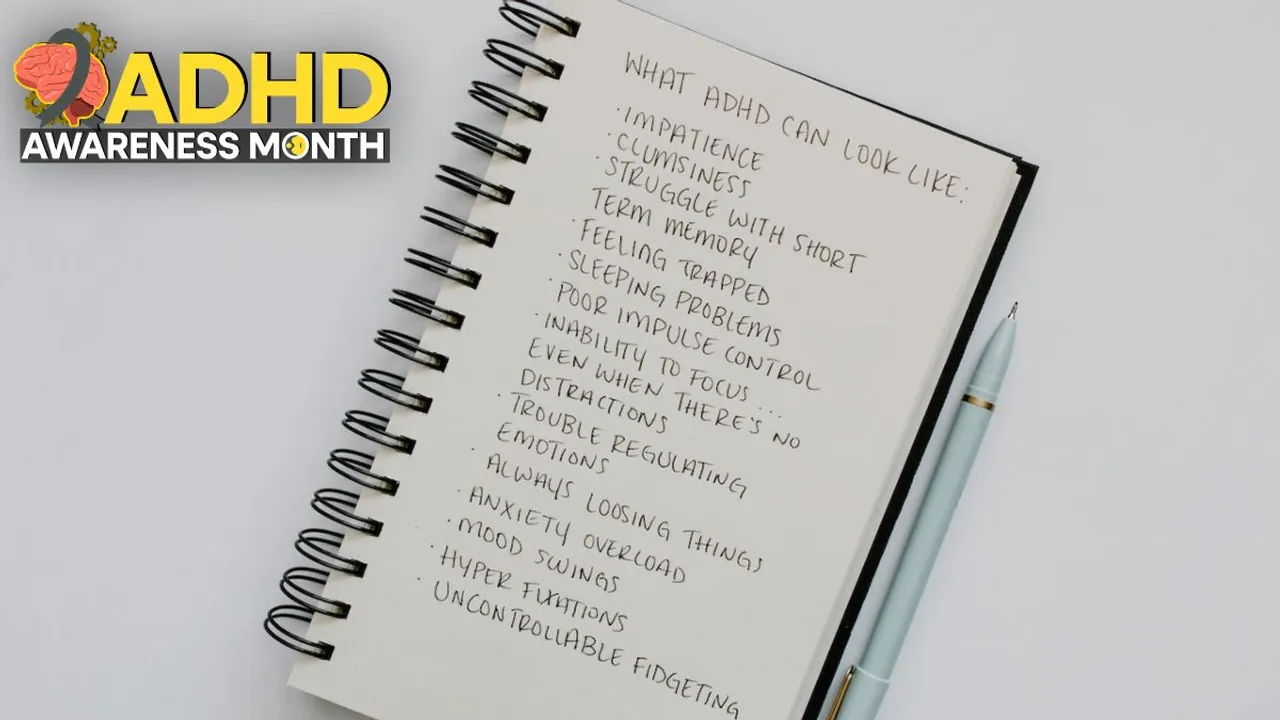 ADHD
AWARENESS MONTH
WHAT ADHD CAN LOOK LIKE:
· IMPATIENCE
· CLUMSINESS
· STRUGGLE WITH SHORT
TERM MEMORY
· FEELING TRAPPED
· SLEEPING PROBLEMS
· POOR IMPULSE CONTROL
· INABILITY TO FOCUS...
EVEN WHEN THERE'S NO
DISTRACTIONS
· TROUBLE REGULATING
EMOTIONS
· ALWAYS LOOSING THINGS
· ANXIETY OVERLOAD
· MOOD SWINGS
· HYPER FIXATIONS
· UNCONTROLLABLE FIDGETING